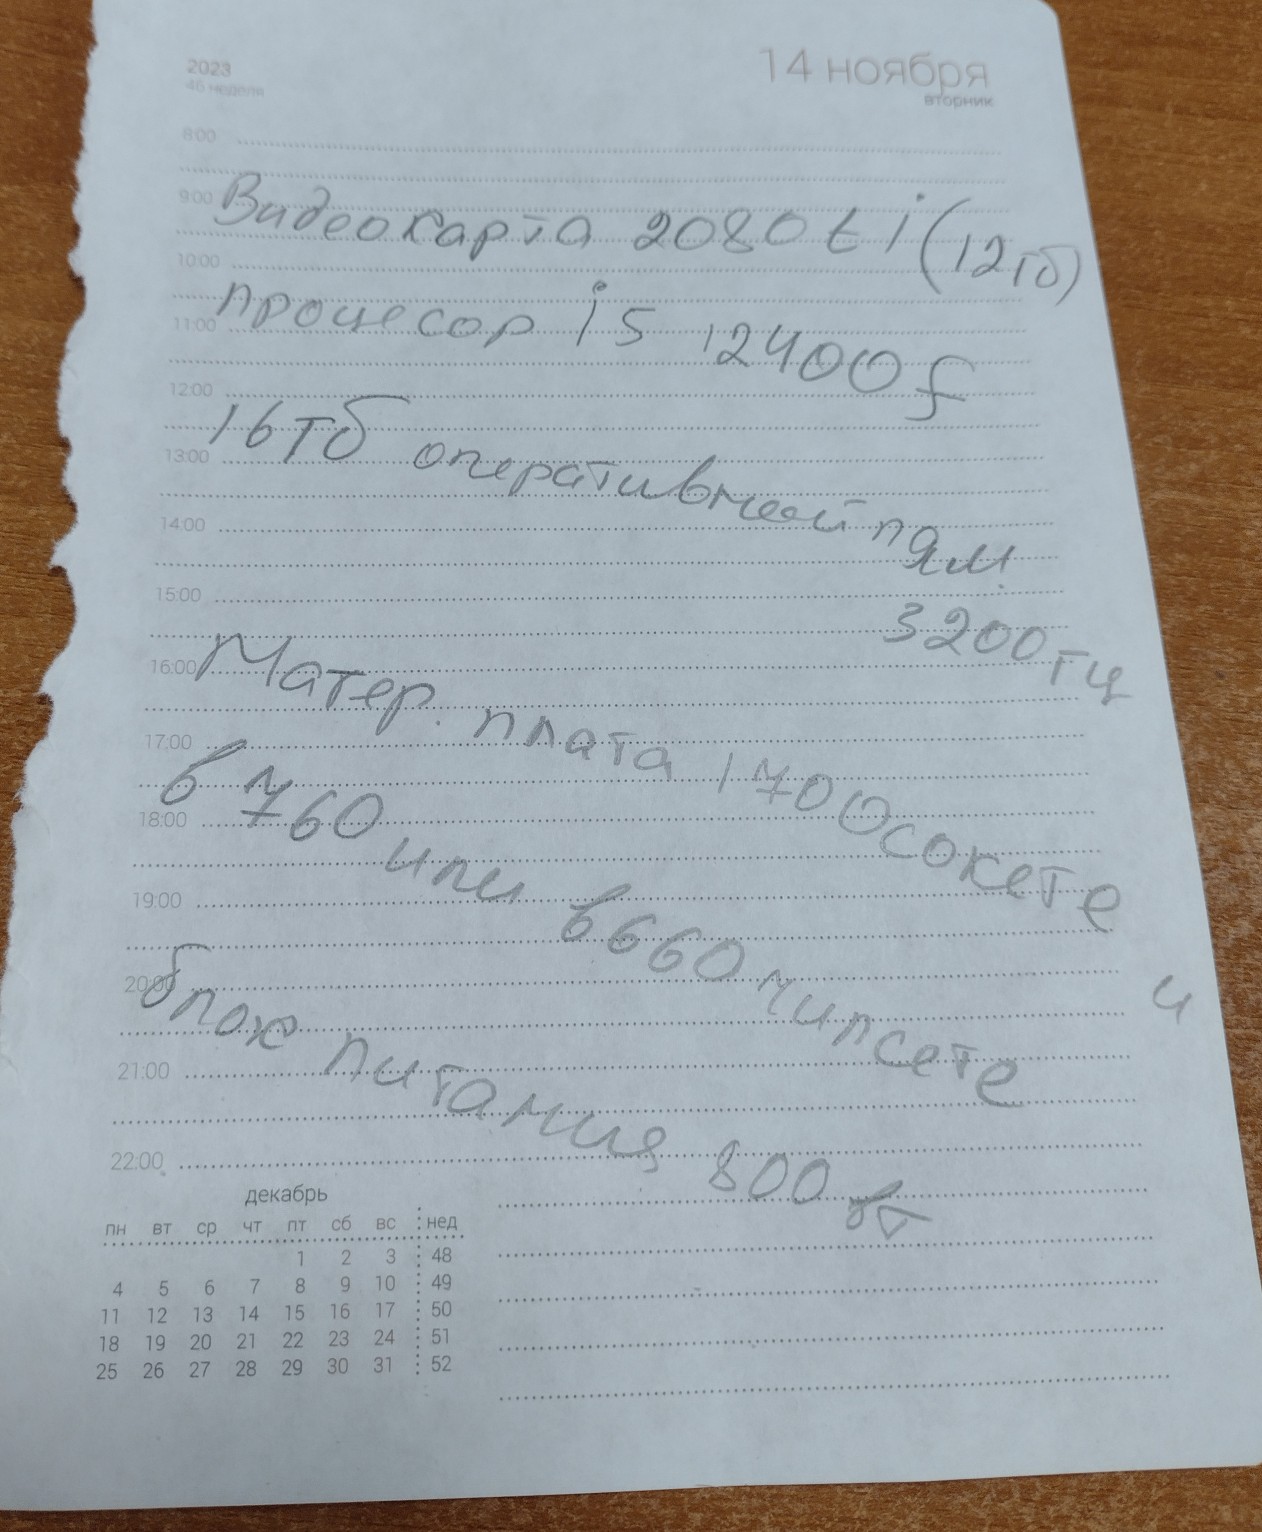 2023
46 неделя
14 ноября
вторник
8:00
9:00
Видеокарта 2080 ti (12гб)
10:00
процесор i5 12400f
11:00
12:00
16гб оперативной пам.
13:00
14:00
15:00
3200 гц
16:00
Матер. плата 1700 сокете
17:00
в760 или в660 чипсете и
18:00
19:00
20:00
блок питания 800 вт
21:00
22:00
декабрь
пн вт ср чт пт сб вс нед
1 2 3 48
4 5 6 7 8 9 10 49
11 12 13 14 15 16 17 50
18 19 20 21 22 23 24 51
25 26 27 28 29 30 31 52